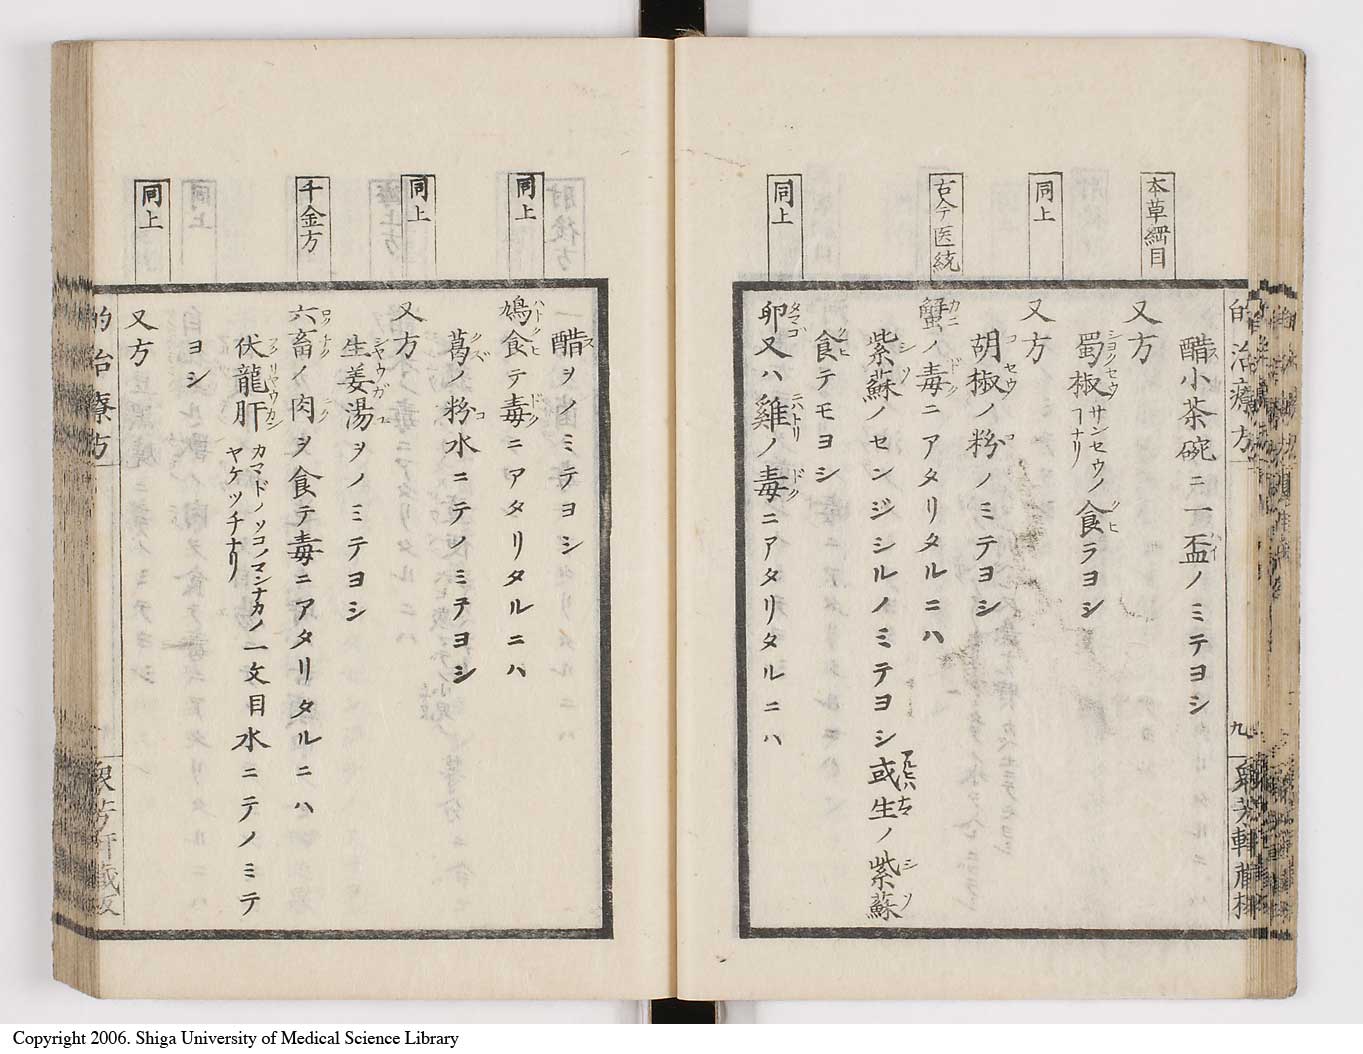 本草綱目
醋小茶碗ニ一盃ノミテヨシ
又方
蜀椒サンセウノコナリ食ラヨシ
同上
又方
胡椒ノ粉ノミテヨシ
古今医統
蟹ノ毒ニアタリタルニハ
紫蘇ノセンジシルノミテヨシ或生ノ紫蘇
食テモヨシ
同上
卵又ハ雞ノ毒ニアタリタルニハ
的治療方
九
醋ヲノミテヨシ
同上
鳩食テ毒ニアタリタルニハ
葛ノ粉水ニテノミテヨシ
同上
又方
生姜湯ヲノミテヨシ
千金方
六畜ノ肉ヲ食テ毒ニアタリタルニハ
伏龍肝カマドノソコノマンナカノヤケツチナリ一文目水ニテノミテ
ヨシ
同上
又方
的治療方
Copyright 2006. Shiga University of Medical Science Library